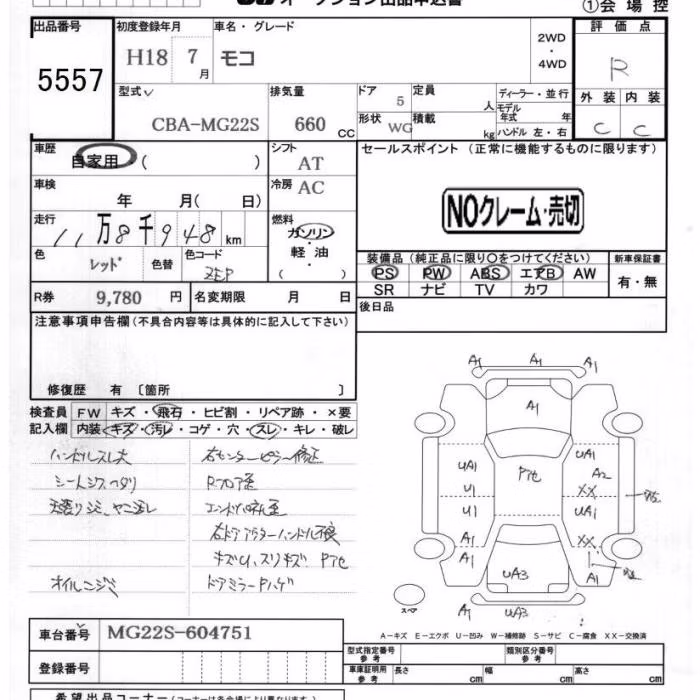 オークション出品申込書
①会 場 控
出品番号
5557
初度登録年月
H18 7月
車名・グレード
モコ
2WD
・
4WD
評 価 点
R
外 装 内 装
C C
型式
CBA-MG22S
排気量
660 CC
ドア 5
形状 WG
定員 人
積載 kg
ディーラー・並行
モデル年式 年
ハンドル 左・右
車歴
自家用 ( )
シフト AT
車検
年 月( 日)
冷房 AC
走行
11万8千948km
燃料
ガソリン・
軽 油
( )
色
レッド
色替
色コード
ZEP
R券 9,780 円
名変期限 月 日
セールスポイント (正常に機能するものに限ります)
NOクレーム・売切
装備品 (純正品に限り○をつけてください)
PS PW ABS エアB AW
SR ナビ TV カワ
新車保証書
有・無
後日品
注意事項申告欄(不具合内容等は具体的に記入して下さい)
修復歴 有 〔箇所 〕
検査員記入欄
FW キズ・飛石・ヒビ割・リペア跡・×要
内装 キズ・汚レ・コゲ・穴・スレ・キレ・破レ
ハンドルスレ大
右センターピラー修正
オイルニジミ
ドアミラーPハゲ
A1 A1 A1
A1
UA1 P色 UA1
A2
U1 XX
U1 UA1
A1 XX
A1 UA3 A1
A1 UA3
スペア
A-キズ E-エクボ U-凹み W-補修跡 S-サビ C-腐食 XX-交換済
車台番号 MG22S-604751
登録番号
型式指定番号 参考
類別区分番号 参考
車庫証明用 参考
長さ cm
幅 cm
高さ cm
希望出品コーナー(コーナーは各会場により異なります)